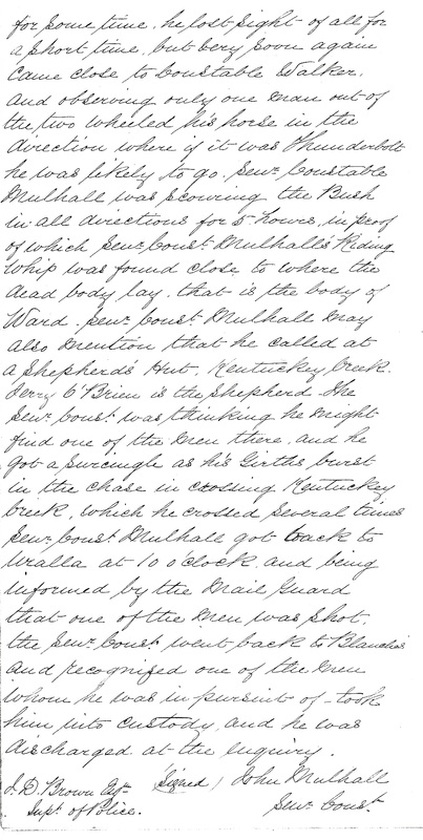 for some time, he lost sight of all for
a short time, but very soon again
came close to Constable Walker.
and observing only one man out of
the two wheeled his horse in the
direction where if it was Thunderbolt
he was likely to go. Senr Constable
Mulhall was scouring the Bush
in all directions for 5 hours, in proof
of which Senr Const Mulhall's Riding
Whip was found close to where the
dead body lay. that is the body of
Ward. Senr Const Mulhall may
also mention that he called at
a Shepherds Hut. Kentuckey Creek.
Jerry O'Brien is the Shepherd. The
Senr Const was thinking he might
find one of the men there. and he
got a surcingle as his Girths burst
in the chase in crossing Kentuckey
Creek. which he crossed several times
Senr Const Mulhall got back to
Uralla at 10 o'clock. and being
informed by the Mail Guard
that one of the men was shot.
the Senr Const went back to Blanches
and recognized one of the men
whom he was in pursuit of - took
him into custody, and he was
discharged at the enquiry.
(Signed) John Mulhall
J. D. Brown Esqr Senr Const
Supt of Police.